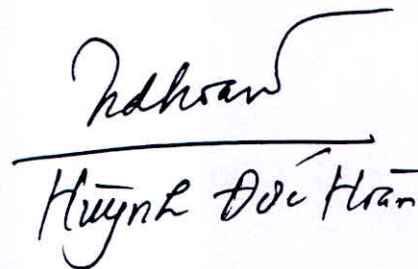 hdhoan
Huỳnh Đức Hoàn